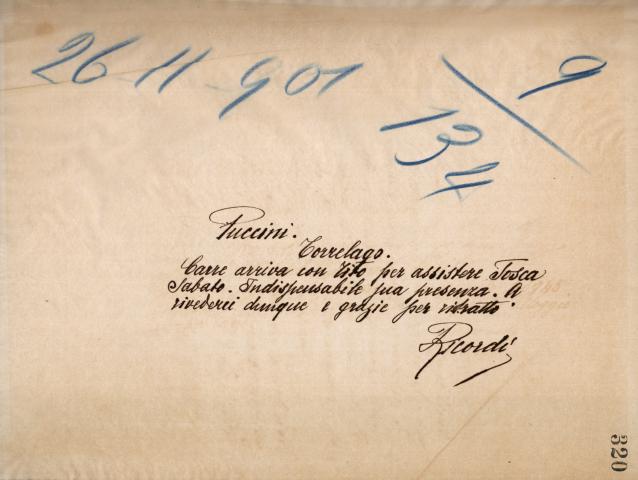 26 11 901
9
134
Puccini.
Torrelago.
Carre arriva con Tito per assistere Tosca
Sabato. Indispensabile sua presenza. A
rivederci dunque e grazie per ritratto.
Ricordi
320